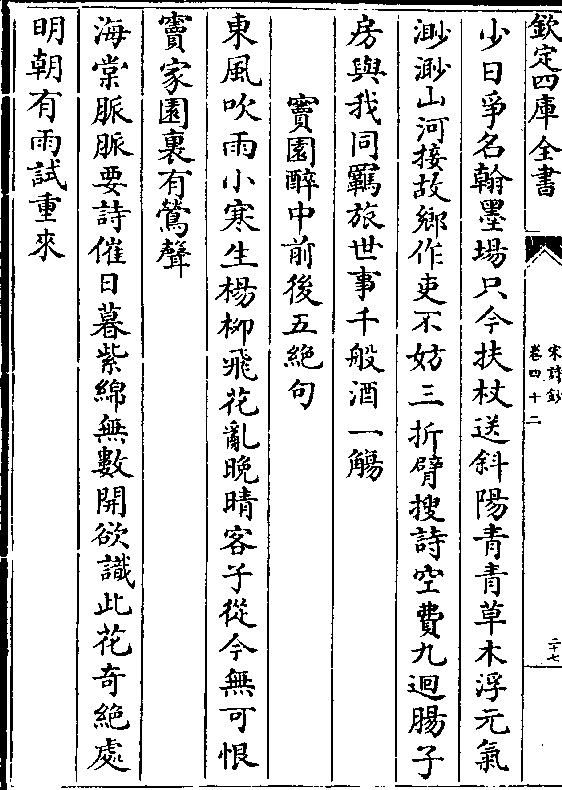 欽定四庫全書
宋詩鈔
卷四十二
二十七
少日爭名翰墨場只今扶杖送斜陽青青草木浮元氣
渺渺山河接故鄉作吏不妨三折臂搜詩空費九迴腸子
房與我同羈旅世事千般酒一觴
竇園醉中前後五絶句
東風吹雨小寒生楊柳飛花亂晚晴客子從今無可恨
竇家園裏有鶯聲
海棠脈脈要詩催日暮紫綿無數開欲識此花奇絶處
明朝有雨試重來